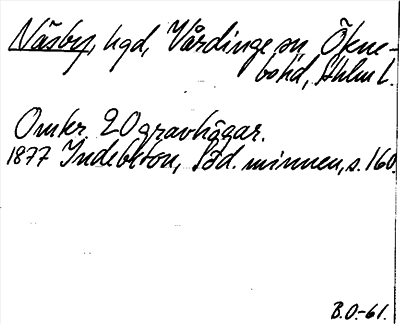 Näsby, hgd, Vårdinge sn, Ökne-
bohd, Sthlm l.
Omkr. 20 gravhögar.
1877 Indebetou, Söd. minnen, s. 160.
B.O.-61.